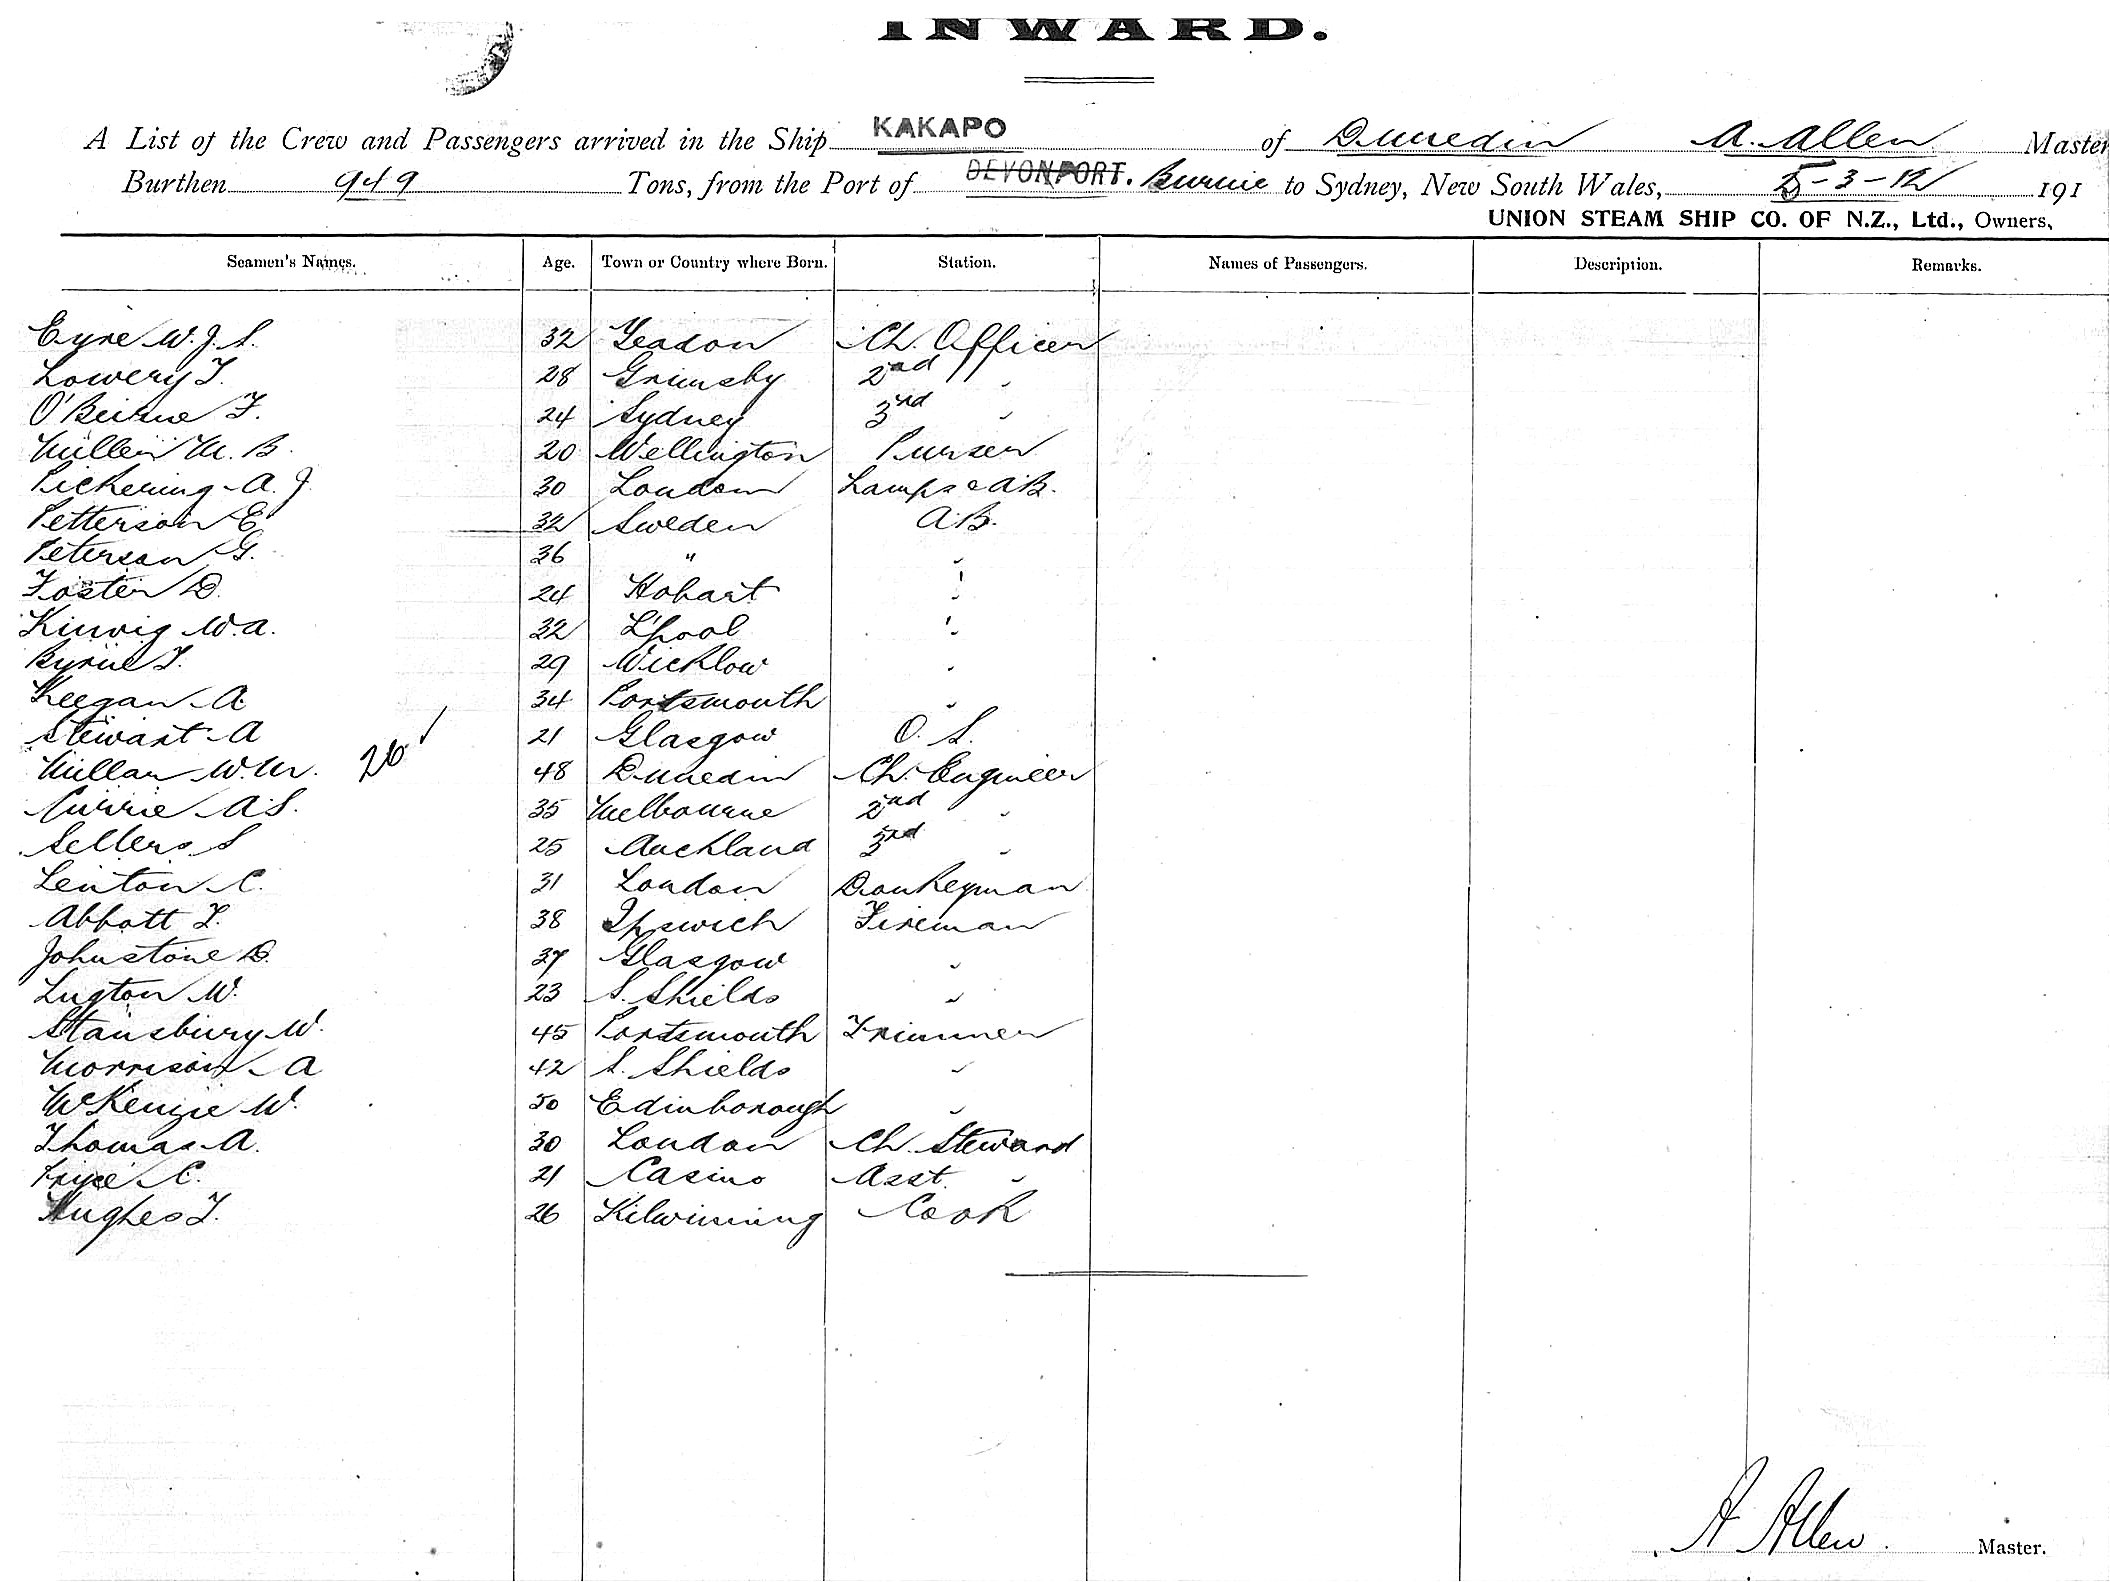 INWARD.
A List of the Crew and Passengers arrived in the Ship KAKAPO of Dunedin A. Allen Master
Burthen 949 Tons, from the Port of DEVONPORT. Burnie to Sydney, New South Wales, 5-3-12 191
UNION STEAM SHIP CO. OF N.Z., Ltd., Owners,
Seamen's Names. Age. Town or Country where Born. Station. Names of Passengers. Description. Remarks.
Eyre W. J. S. 32 Yeadon Ch. Officer
Lowery T. 28 Grimsby 2nd "
O'Beirne F. 24 Sydney 3rd "
Miller M. B. 20 Wellington Purser
Pickering A. J. 30 London Lamps & AB.
Petterson E 32 Sweden A.B.
Peterson G. 36 " "
Foster D. 24 Hobart "
Kinvig W. A. 32 L'pool "
Byrne T. 29 Wicklow "
Keegan A 34 Portsmouth "
Stewart A 21 Glasgow O. S.
Millar W. M. 26 48 Dunedin Ch. Engineer
Currie A S. 35 Melbourne 2nd "
Sellers S 25 Auckland 3rd "
Lenton C. 31 London Donkeyman
Abbott T. 38 Ipswich Fireman
Johnstone D. 37 Glasgow "
Lugton W. 23 S. Shields "
Stansbury W. 45 Portsmouth Trimmer
Morrison A 42 S. Shields "
McKenzie W. 50 Edinborough "
Thomas A. 30 London Ch. Steward
C. 21 Casino Asst. "
Hughes T. 26 Kilwinning Cook
A Allen. Master.